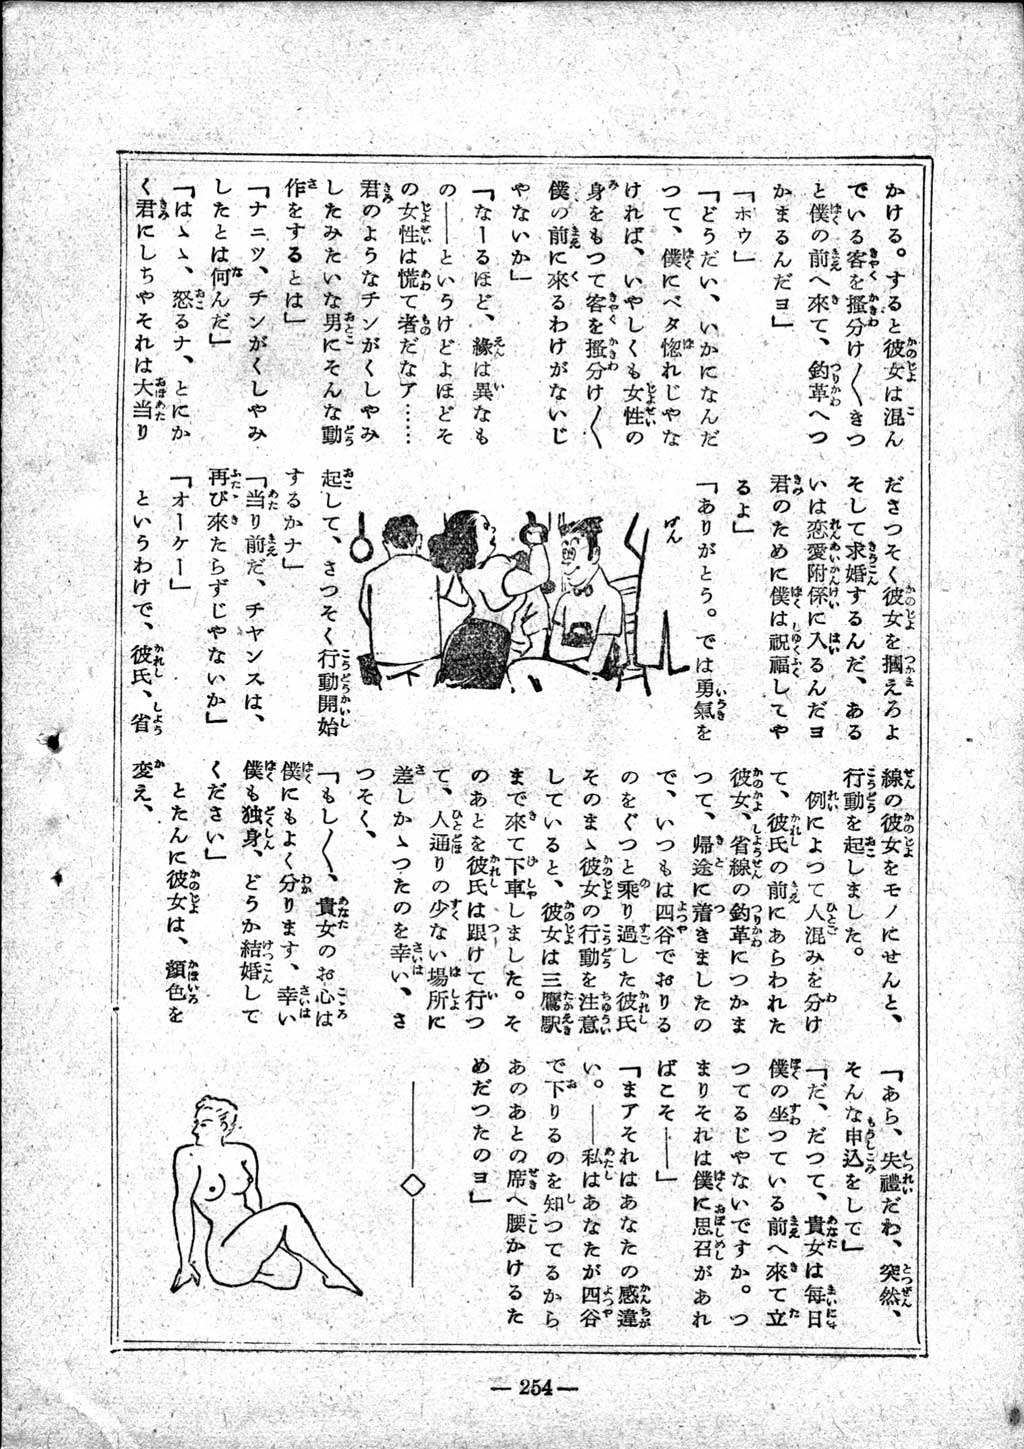 かける。すると彼女は混ん
でいる客を掻分け〳〵きつ
と僕の前へ來て、釣革へつ
かまるんだヨ」
「ホウ」
「どうだい、いかになんだ
つて、僕にベタ惚れじやな
ければ、いやしくも女性の
身をもつて客を掻分け〳〵
僕の前に來るわけがないじ
やないか」
「なーるほど、緣は異なも
の――というけどよほどそ
の女性は慌て者だなア……
君のようなチンがくしやみ
したみたいな男にそんな動
作をするとは」
「ナニツ、チンがくしやみ
したとは何んだ」
「はゝゝ、怒るナ、とにか
く君にしちやそれは大当り
ださつそく彼女を摑えろよ
そして求婚するんだ、ある
いは恋愛関係に入るんだヨ
君のために僕は祝福してや
るよ」
「ありがとう。では勇氣を
けん
起して、さつそく行動開始
するかナ」
「当り前だ、チヤンスは、
再び來たらずじやないか」
「オーケー」
というわけで、彼氏、省
線の彼女をモノにせんと、
行動を起しました。
例によつて人混みを分け
て、彼氏の前にあらわれた
彼女、省線の釣革につかま
つて、帰途に着きましたの
で、いつもは四谷でおりる
のをぐつと乗り過した彼氏
そのまゝ彼女の行動を注意
していると、彼女は三鷹駅
まで來て下車しました。そ
のあとを彼氏は跟けて行つ
て、人通りの少ない場所に
差しかゝつたのを幸い、さ
つそく、
「もし〳〵、貴女のお心は
僕にもよく分ります、幸い
僕も独身、どうか結婚して
ください」
とたんに彼女は、顏色を
変え、
「あら、失禮だわ、突然、
そんな申込をして」
「だ、だつて、貴女は毎日
僕の坐つている前へ來て立
つてるじやないですか。つ
まりそれは僕に思召があれ
ばこそ――」
「まアそれはあなたの感違
い。――私はあなたが四谷
で下りるのを知つてるから
あのあとの席へ腰かけるた
めだつたのヨ」
― 254 ―